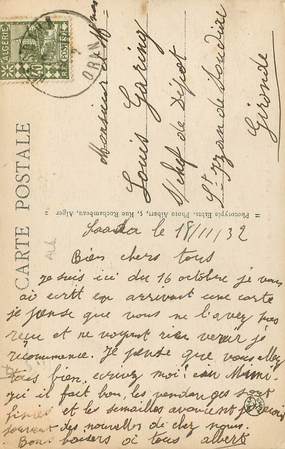 CARTE POSTALE
ALGERIE
POSTES
ORAN
Monsieur et Mme
Louis Garing
S/Chef de Dépôt
St Jean de
Gironde
Phototypie Etabts. Photo Albert, 5, Rue Rochambeau, Alger
Saada le 18/11/32
Bien chers tous
je suis ici du 16 octobre je vous
ai écrit en arrivant une carte
je pense que vous ne l'avez pas
reçu et ne voyant rien venir je
recommence. Je pense que vous allez
tous bien, écrivez moi!
ici il fait bon, les
et les semailles avancent
souvent des nouvelles de chez nous.
Bons baisers à tous albert